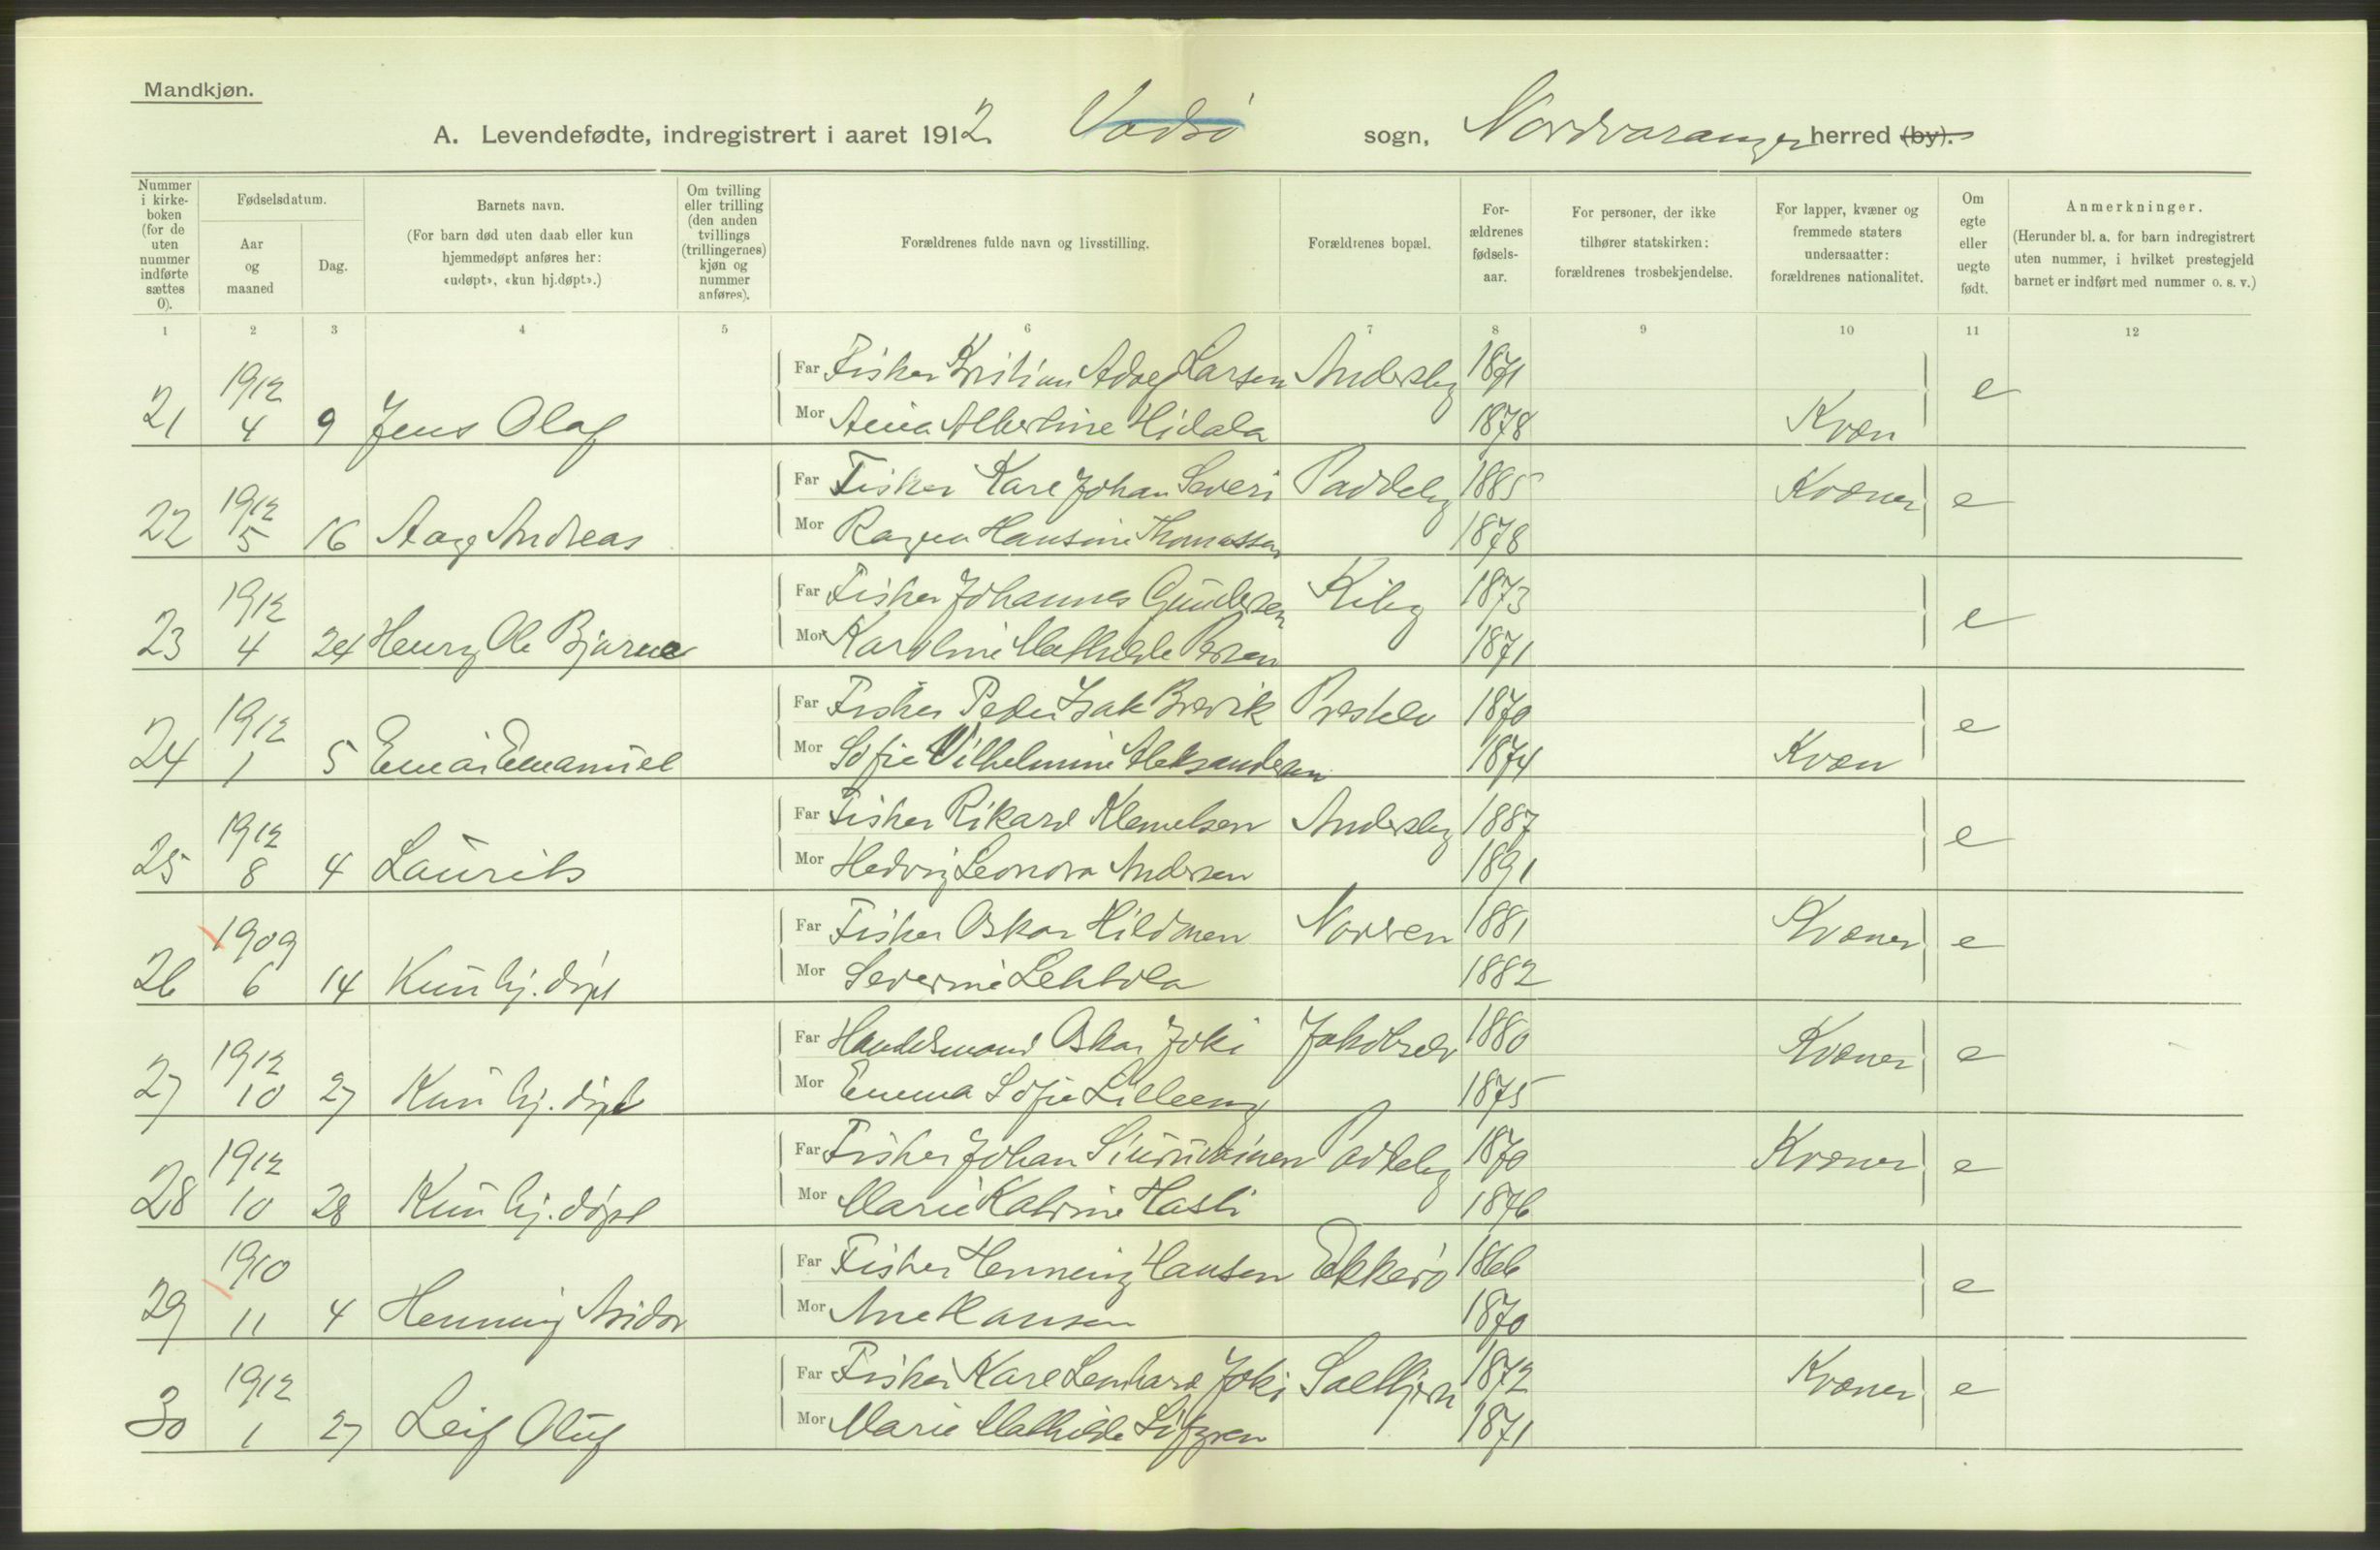 Mandkjøn.
A. Levendefødte, indregistrert i aaret 1912 Vadsø sogn, Nordvaranger herred (by).
Nummer i kirkeboken (for de uten nummer indførte sættes 0).
Fødselsdatum.
Aar og maaned
Dag.
Barnets navn.
(For barn død uten daab eller kun hjemmedøpt anføres her: «udøpt», «kun hj.døpt».)
Om tvilling eller trilling (den anden tvillings (trillingernes) kjøn og nummer anføres).
Forældrenes fulde navn og livsstilling.
Forældrenes bopæl.
Forældrenes fødselsaar.
For personer, der ikke tilhører statskirken: forældrenes trosbekjendelse.
For lapper, kvæner og fremmede staters undersaatter: forældrenes nationalitet.
Om egte eller uegte født.
Anmerkninger.
(Herunder bl. a. for barn indregistrert uten nummer, i hvilket prestegjeld barnet er indført med nummer o. s. v.)
1 2 3 4 5 6 7 8 9 10 11 12
Far Fisker Kristian Larsen Andersby 1871
21 1912 4 9 Jens Olaf Mor Albertine Hidala 1878 Kvæn e
Far Fisker Karl Johan Severi Paddeby 1885 Kvæner e
22 1912 5 16 Aage Andreas Mor Ragna Hansine Thomassen 1878
Far Fisker Johannes Gundersen Kiby 1873
23 1912 4 24 Henry Ole Bjarne Mor Karoline Mathilde 1871 e
Far Fisker Peder Isak Brevik Prestelv 1870
24 1912 1 5 Einar Emanuel Mor Sofie Vilhelmine Aleksandersen 1874 Kvæn e
Far Fisker Rikard Klemetsen Andersby 1887
25 1912 8 4 Laurits Mor Hedvig Leonora Andersen 1891 e
Far Fisker Oskar Hildonen 1881 Kvæner e
26 1909 6 14 Kun hj. døpt Mor Severine Lehtola 1882
Far Handelsmand Oskar Joki Jakobselv 1880 Kvæner e
27 1912 10 27 Kun hj. døpt Mor Emma Sofie Lilleeng 1875
Far Fisker Johan Paddeby 1870 Kvæner e
28 1912 10 28 Kun hj. døpt Mor Marie Katrine 1876
Far Fisker Henning Hansen Ekkerø 1866
29 1910 11 4 Henning Aridor Mor Ane Hansen 1870 e
Far Fisker Karl Lenhard Joki Saltbjern 1872 Kvæner e
30 1912 1 27 Leif Oluf Mor Marie Mathilde 1871